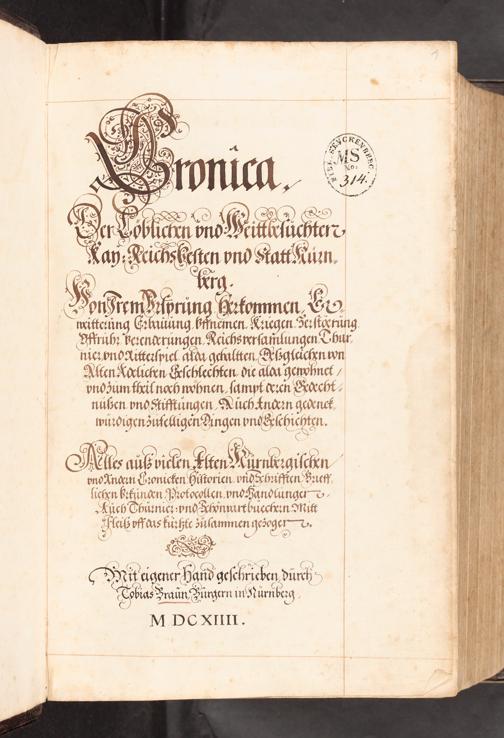 Cronica.
BIBL. SENCKENBERG.
MS
No.
314.
Der Loblichen vnd Weittbesuchten
Kay: Reichs Vesten vnd Statt Nürn,
berg.
Von Irem Vrsprung Herkommen, Er
weitterung Erbauung Vffnemen, Kriegen Zerstoerung
Vffruhr Verenderungen, Reichsversamlungen Thur
nier, vnd Ritterspiel alda gehaltten, Desgleichen von
Alten Adelichen Geschlechten die alda gewohnet
vnd zum theil noch wohnen, sampt deren Gedecht,
nüßen vnd Stifftungen, Auch Andern gedenck,
würdigen Zufelligen Dingen vnd Geschichten.
Alles auß vielen Alten Nürnbergischen
vnd Andern Cronicken, Historien, vnd Schrifften Brieff,
lichen Vrkünden, Protocollen, vnd Handlungen
Auch Thürnier vnd Schönnartbuechern Mitt
Fleiß vff das kürtzte zusammen gezogen
Mit eigener Hand geschrieben, durch
Tobias Braün, Bürgern in Nürnberg
M DC XIIII.